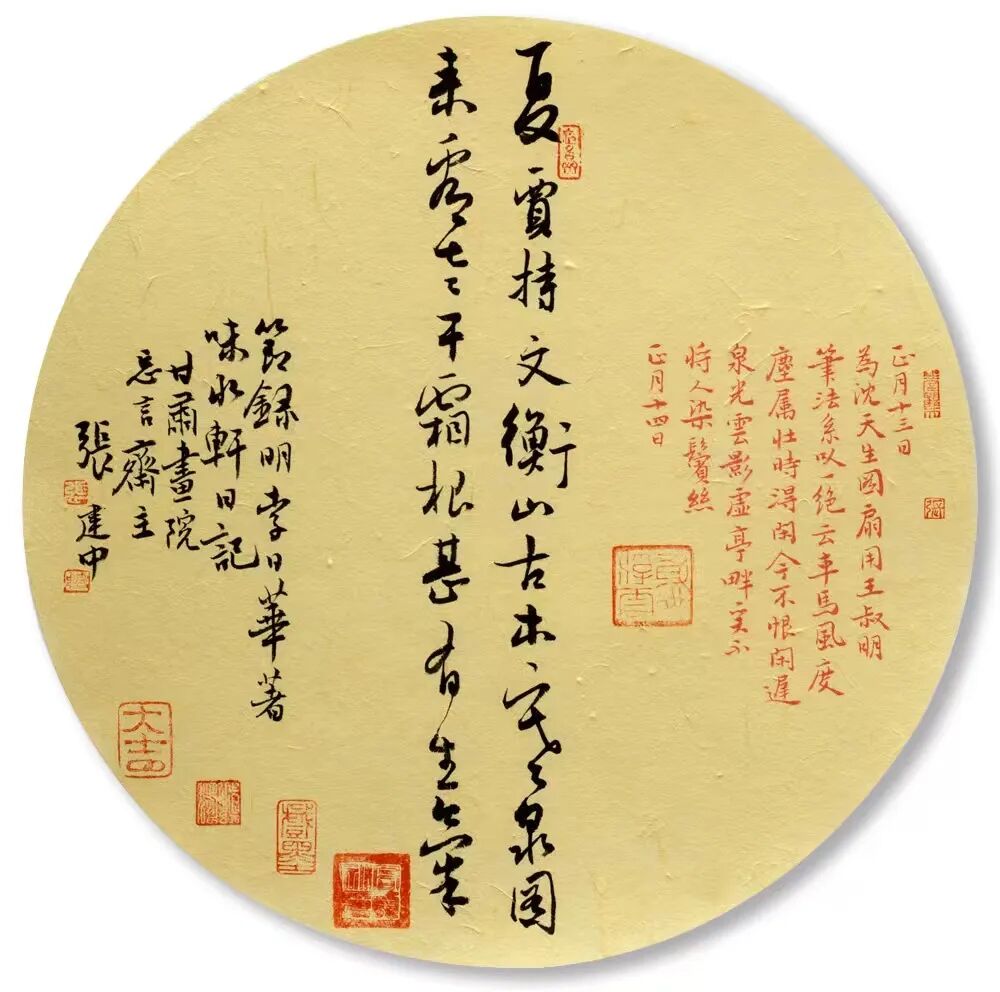 正月十三日
為沈天生圖扇用王叔明
筆法系以一绝云車馬風度
塵属壮時淂閑今不恨閑遲
泉光雲影虛亭畔笑不
将人染鬢絲
正月十四日
夏賈持文衡山古木寒泉圖
来干霜根甚有生
節録明李日華著
味水軒日記
甘肅畫院
忘言齋主
張建中